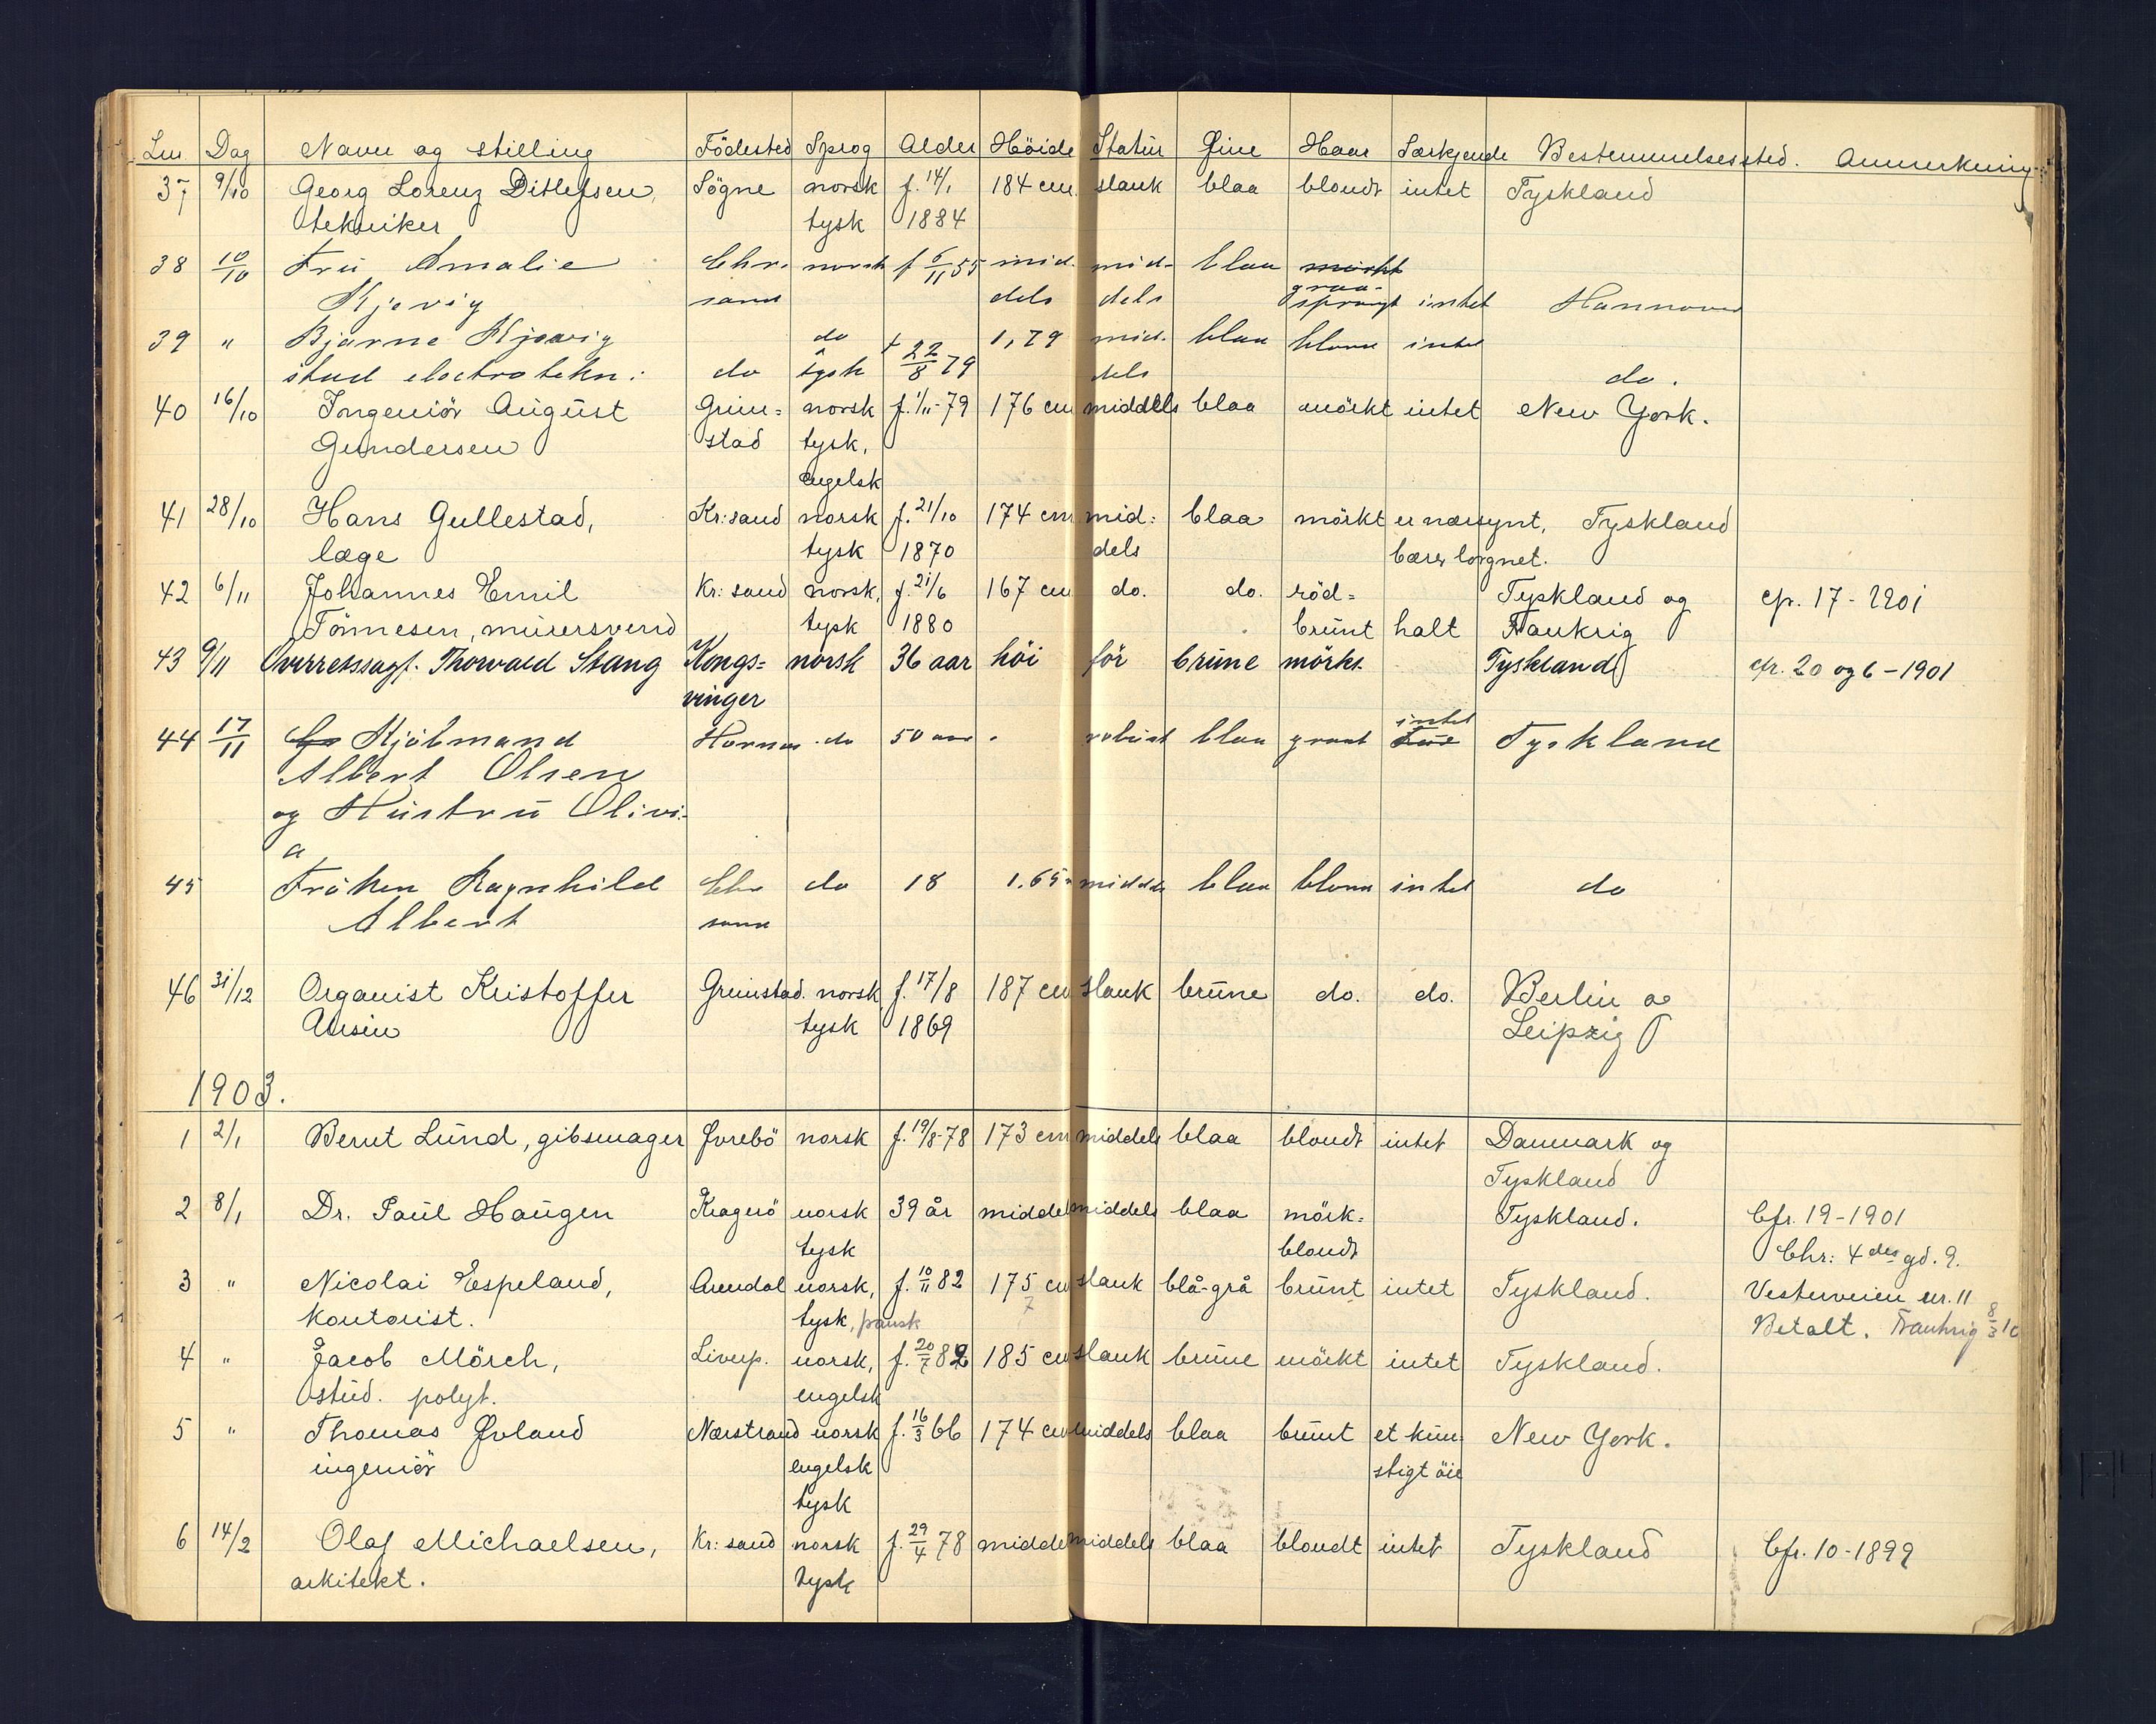 Lnr Dag Navn og stilling Födested Sprog Alder Höide Statur Øine Haar Særkjende Bestemmelsessted. Anmerkning.
37 9/10 Georg Lorenz Ditlefsen, Sögne norsk f. 14/1 184 cm. slank blaa blondt intet Tyskland
tekniker tysk 1884
38 10/10 Fru Amalie Chr. norsk f 6/11 55 mid. mid- blaa mörkt
Kjevig sand dels dels graa-sprængt intet Hannover
39 " Bjarne Kjevig do 1,79 mid. blaa blond intet
stud electrotekn: do & tysk f 22/8 79 dels do.
40 16/10 Ingeniör August Grim= norsk f. 1/11-79 176 cm middels blaa mörkt intet New York.
Gundersen stad tysk,
engelsk
41 28/10 Hans Gullestad, Kr:sand norsk f. 21/10 174 cm mid: blaa mörkt er nærsynt, Tyskland
læge tysk 1870 dels bærer lorgnet.
42 6/11 Johannes Emil Kr:sand norsk, f. 21/6 167 cm do. do. röd= Tyskland og cfr. 17-1901
Tönnesen, murersvend tysk 1880 brunt halt Frankrig
43 9/11 Overretssagf. Thorvald Stang Kongs= norsk 36 aar höi för brune mörkt. Tyskland cfr. 20 og 6-1901
vinger
44 17/11 Kjöbmand Hornnes do 50 aar robust blaa graat intet Tyskland
Albert Olsen
og Hustru Olivi-
a
45 Fröken Ragnhild Chr do 18 1.65 middels blaa blond intet do
Albert sand
46 31/12 Organist Kristoffer Grimstad. norsk f. 17/8 187 cm slank brune do. do. Berlin og
tysk 1869 Leipzig
1903.
1 2/1 Bernt Lund, gibsmager Øvrebö norsk f. 19/8-78 173 cm middels blaa blondt intet Danmark og
Tyskland
2 8/1 Dr. Paul Haugen Kragerö norsk 39 år middels middels blaa mörk= Tyskland. Cfr. 19-1901
tysk blondt Chr: 4des gd. 9.
3 " Nicolai Espeland, Arendal norsk, f. 10/11 82 175 cm slank blå-grå brunt intet Tyskland. Vesterveien nr. 11
kontorist. 7 tysk, fransk Betalt. Frankrig 8/3 10
4 " Jacob Mörch, Liverp. norsk, f. 20/7 82 185 cm slank brune mörkt intet Tyskland.
stud. polyt. engelsk
5 " Thomas Øvland Nærstrand norsk f. 16/3 66 174 cm middels blaa brunt et kun- New York.
ingeniör engelsk stigt öie
tysk
6 14/2 Olaf Michaelsen, Kr:sand norsk f. 29/4 78 middels middels blaa blondt intet Tyskland Cfr. 10-1899
arkitekt. tysk